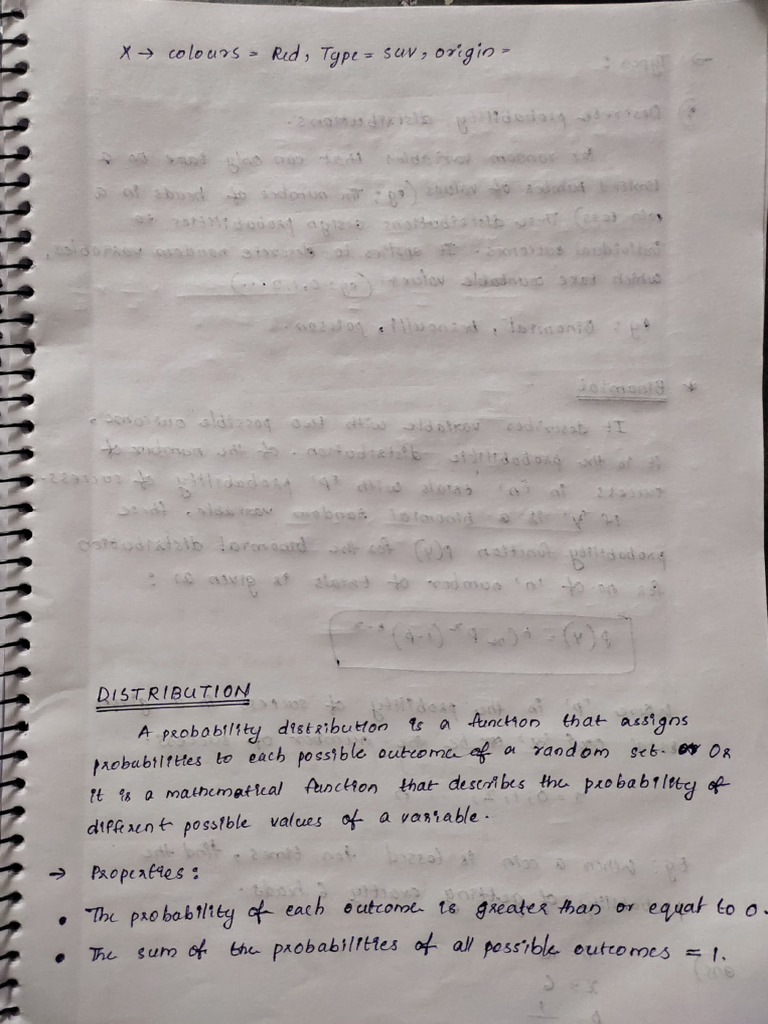 X → colours = Red, Type = SUV, origin =
DISTRIBUTION
A probability distribution is a function that assigns
probabilities to each possible outcome of a random set. Or
it is a mathematical function that describes the probability of
different possible values of a variable.
→ Properties:
• The probability of each outcome is greater than or equal to 0.
• The sum of the probabilities of all possible outcomes = 1.